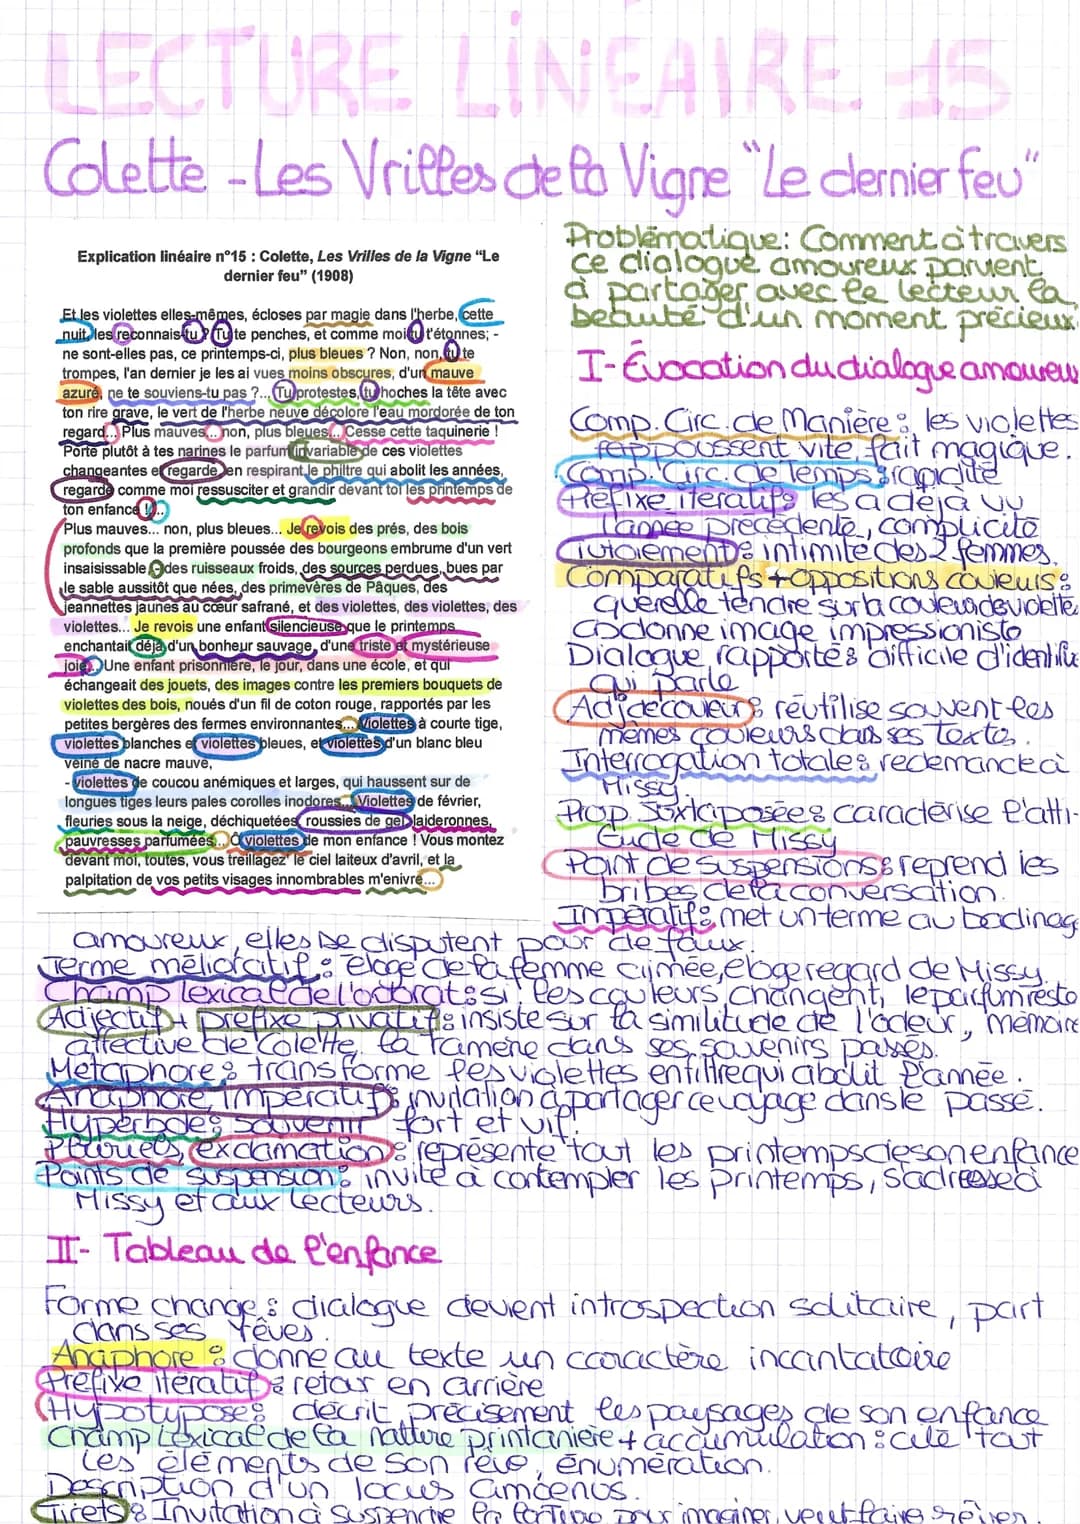 LECTURE LINÉAIRE 15
Colette - Les Vrilles de la Vigne "Le dernier feu"
Explication linéaire n°15 : Colette, Les Vrilles de la Vigne "Le
dernier feu" (1908)
Et les violettes elles-mêmes, écloses par magie dans l'herbe, cette
nuit, les reconnais-tu ? Tu te penches, et comme moi tu t'étonnes; -
ne sont-elles pas, ce printemps-ci, plus bleues ? Non, non, tu te
trompes, l'an dernier je les ai vues moins obscures, d'un mauve
azuré, ne te souviens-tu pas ?... Tu protestes, tu hoches la tête avec
ton rire grave, le vert de l'herbe neuve décolore l'eau mordorée de ton
regard... Plus mauves... non, plus bleues... Cesse cette taquinerie !
Porte plutôt à tes narines le parfum invariable de ces violettes
changeantes et regarde, en respirant le philtre qui abolit les années,
regarde comme moi ressusciter et grandir devant toi les printemps de
ton enfance !...
Plus mauves... non, plus bleues... Je revois des prés, des bois
profonds que la première poussée des bourgeons embrume d'un vert
insaisissable, - des ruisseaux froids, des sources perdues, bues par
le sable aussitôt que nées, des primevères de Pâques, des
jeannettes jaunes au cœur safrané, et des violettes, des violettes, des
violettes... Je revois une enfant silencieuse que le printemps
enchantait déjà d'un bonheur sauvage, d'une triste et mystérieuse
joie... Une enfant prisonnière, le jour, dans une école, et qui
échangeait des jouets, des images contre les premiers bouquets de
violettes des bois, noués d'un fil de coton rouge, rapportés par les
petites bergères des fermes environnantes... Violettes à courte tige,
violettes blanches et violettes bleues, et violettes d'un blanc bleu
veiné de nacre mauve,
- violettes de coucou anémiques et larges, qui haussent sur de
longues tiges leurs pales corolles inodores... Violettes de février,
fleuries sous la neige, déchiquetées, roussies de gel, laideronnes,
pauvresses parfumées... Ô violettes de mon enfance ! Vous montez
devant moi, toutes, vous treillagez le ciel laiteux d'avril, et la
palpitation de vos petits visages innombrables m'enivre...
Problématique : Comment à travers
ce dialogue amoureux parvient
à partager avec le lecteur la
beauté d'un moment précieux.
I- Évocation du dialogue amoureux
Comp. Circ. de Manière : les violettes
repoussent vite, fait magique.
Comp. Circ. de Temps : rapidité
Préfixe itératif : les a déjà vu
l'année précédente, complicité
Tutoiement : intimité des 2 femmes.
Comparatifs + oppositions couleurs :
querelle tendre sur la couleur de violette
donne image impressioniste
Dialogue rapportés difficile d'identifié
qui parle
Adj de couleur : réutilise souvent les
mêmes couleurs dans ses textes.
Interrogation totale : redemande à
Missy.
Prop. Juxtaposée : caractérise l'atti-
tude de Missy
Point de suspensions : reprend les
bribes de la conversation.
Impératif : met un terme au badinage
amoureux, elles se disputent pour de faux.
Terme mélioratif : éloge de la femme aimée, eloge regard de Missy.
Champ lexical de l'odorat : si les couleurs changent, le parfum reste
Adjectif + préfixe privatif : insiste sur la similitude de l'odeur, mémoire
affective de Colette, la ramène dans ses souvenirs passés.
Métaphore : transforme les violettes en filtre qui abolit l'année.
Anaphore, Impératif : invitation à partager ce voyage dans le passé.
Hyperbole : souvenir fort et vif.
Pluriels, exclamation : représente tout les printemps de son enfance
Points de suspension : invite à contempler les printemps, s'adresse à
Missy et aux lecteurs.
II- Tableau de l'enfance
Forme change : dialogue devient introspection solitaire, part
dans ses rêves.
Anaphore : donne au texte un caractère incantatoire
Préfixe itératif : retour en arrière
Hypotypose : décrit précisement les paysages de son enfance
Champ Lexical de la nature printanière + accumulation : cite tout
les éléments de son rêve, énumération.
Description d'un locus amoenus.
Tirets : Invitation à suspendre la lecture pour imaginer, veut faire rêver.